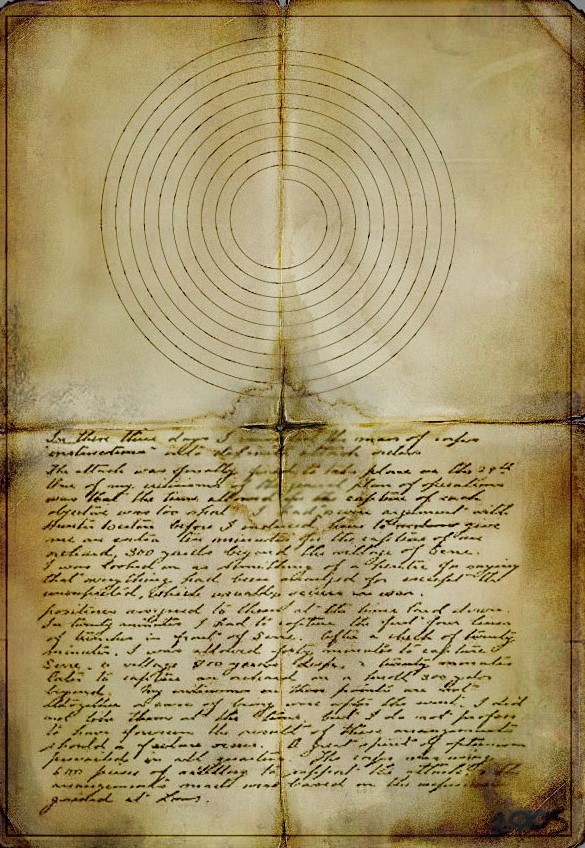 In these three days I the mass of corps
instructions into definite attack orders
The attack was finally to take place on the 29th
One of my criticisms of the general plan of operations
was that the time allowed for the capture of each
objective was too short. I had a severe argument with
Hunter Weston before I induced him to give
me an extra ten minutes for the capture of an
orchard, 300 yards beyond the village of Serre.
I was looked on as something of a heretic for saying
that everything had been arranged for except the
unexpected, which usually occurs in war.
positions assigned to them at the time laid down.
In twenty minutes I had to capture the first four lines
of trenches in front of Serre. After a check of twenty
minutes, I was allowed forty minutes to capture
Serre, a village 800 yards deep, & twenty minutes
later to capture an orchard on a knoll 300 yards
beyond. My criticisms on these points are not
altogether a case of being wise after the event. I did
not like them at the time, but I do not profess
to have foreseen the result of these arrangements
should a failure occur. A great spirit of optimism
prevailed in all quarters. The corps was using
600 pieces of artillery to support the attack & the
arrangements made were based on the experience
gained at Loos.